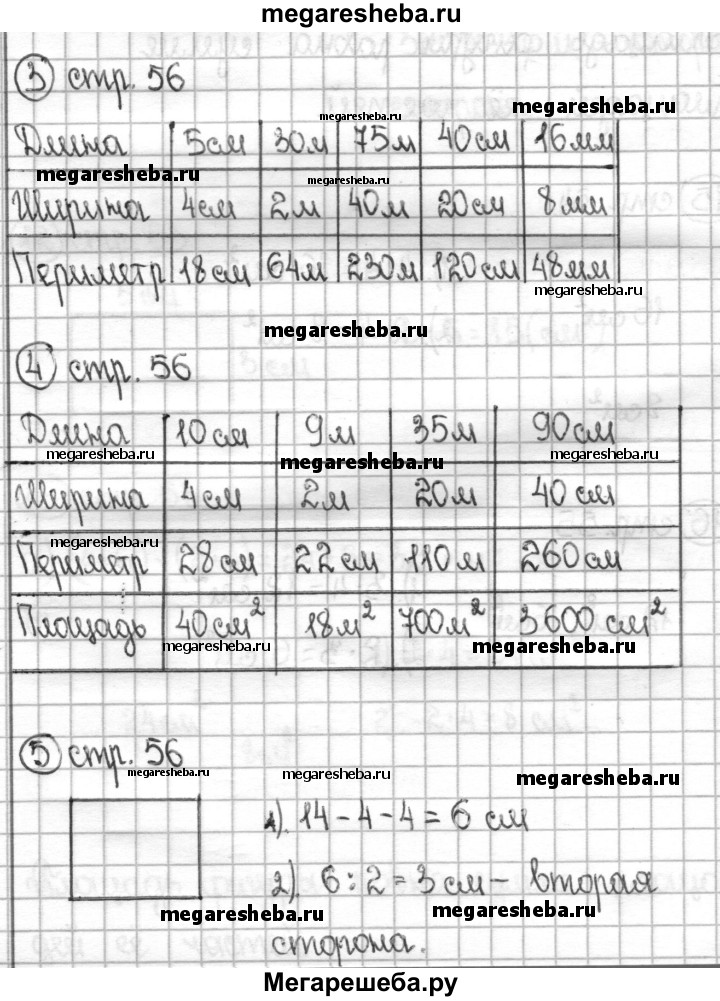 megaresheba.ru
3 стр. 56
megaresheba.ru megaresheba.ru
Длина 5см 30м 75м 40см 16мм
megaresheba.ru megaresheba.ru
Ширина 4см 2м 40м 20см 8мм
Периметр 18см 64м 230м 120см 48мм
megaresheba.ru
megaresheba.ru
4 стр. 56
Длина 10см 9м 35м 90см
megaresheba.ru megaresheba.ru megaresheba.ru
Ширина 4см 2м 20м 40см
megaresheba.ru megaresheba.ru
Периметр 28см 22см 110м 260см
Площадь 40см² 18м² 700м² 3600см²
megaresheba.ru megaresheba.ru
5 стр. 56
megaresheba.ru megaresheba.ru megaresheba.ru
1). 14 - 4 - 4 = 6 см
2). 6 : 2 = 3 см - вторая
megaresheba.ru megaresheba.ru
сторона.
Мегарешеба.ру